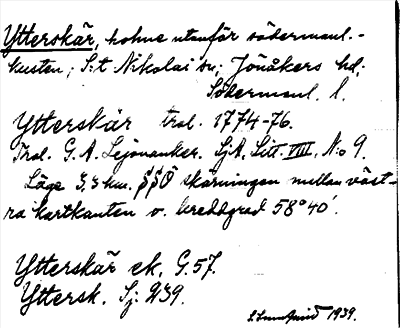 Ytterskär, holme utanför södermanl.-
kusten; S:t Nikolai sn; Jönåkers hd;
Södermanl. l.
Ytterskär tral. 1774-76.
Tral. G. A. Lejonanker. SjA, Litt. VIII, No 9.
Läge 3,3 km. SSO skärningen mellan väst-
ra kartkanten o. breddgrad 58°40'.
Ytterskär ek. G. 57.
Yttersk. Sj. 939.
1939.